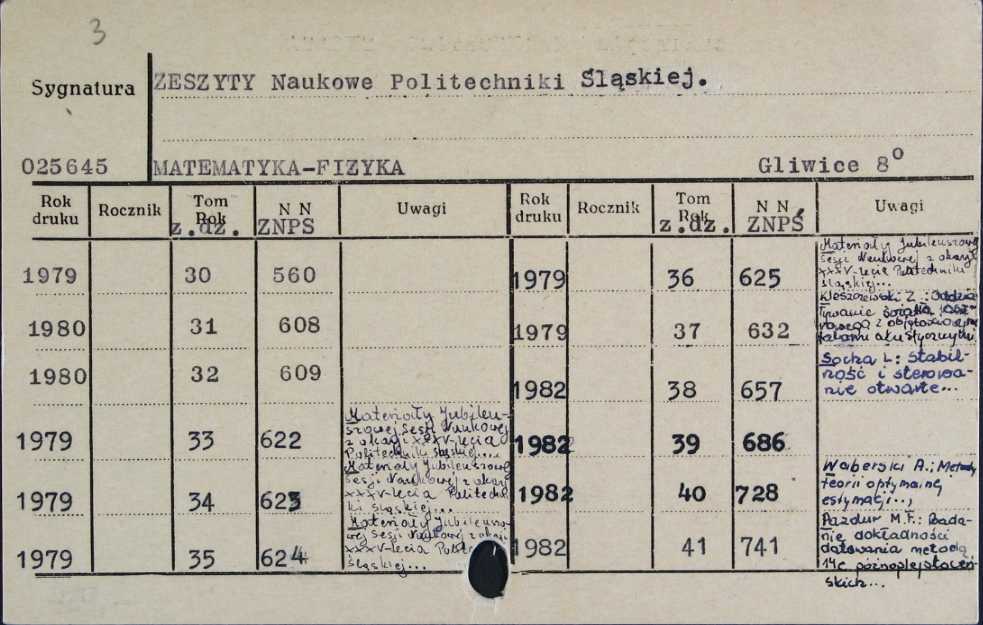 3
Sygnatura
ZESZYTY Naukowe Politechniki Śląskiej.
025645
MATEMATYKA-FIZYKA
Gliwice 8º
Rok druku
Rocznik
Tom Rok
z.dz.
N N
ZNPS
Uwagi
Rok druku
Rocznik
Tom Rok
z.dz.
N N
ZNPŚ
Uwagi
1979 30 560
1980 31 608
1980 32 609
1979 33 622
Materiały Jubileu-
szowej Sesji Naukowej
z okazji XXXV-lecia
Politechniki Śląskiej...
1979 34 623
Materiały Jubileuszowej
Sesji Naukowej z okazji
XXXV-lecia Politechni-
ki Śląskiej...
1979 35 624
Materiały Jubileuszo-
wej Sesji Naukowej z okazji
XXXV-lecia
Śląskiej...
1979 36 625
Materiały Jubileuszowej
Sesji Naukowej z okazji
XXXV-lecia Politechniki
Śląskiej...
1979 37 632
Kleszczewski Z.: Oddzia-
ływanie światła
z objętościowymi
falami akustycznymi
1982 38 657
Socha L: Stabil-
ność i sterowa-
nie otwarte...
1982 39 686
1982 40 728
Waberski A.: Metody
teorii optymalnej
estymacji...
1982 41 741
Pazdur M.F.: Bada-
nie dokładności
datowania metodą
14c późnoplejstoceń-
skich...